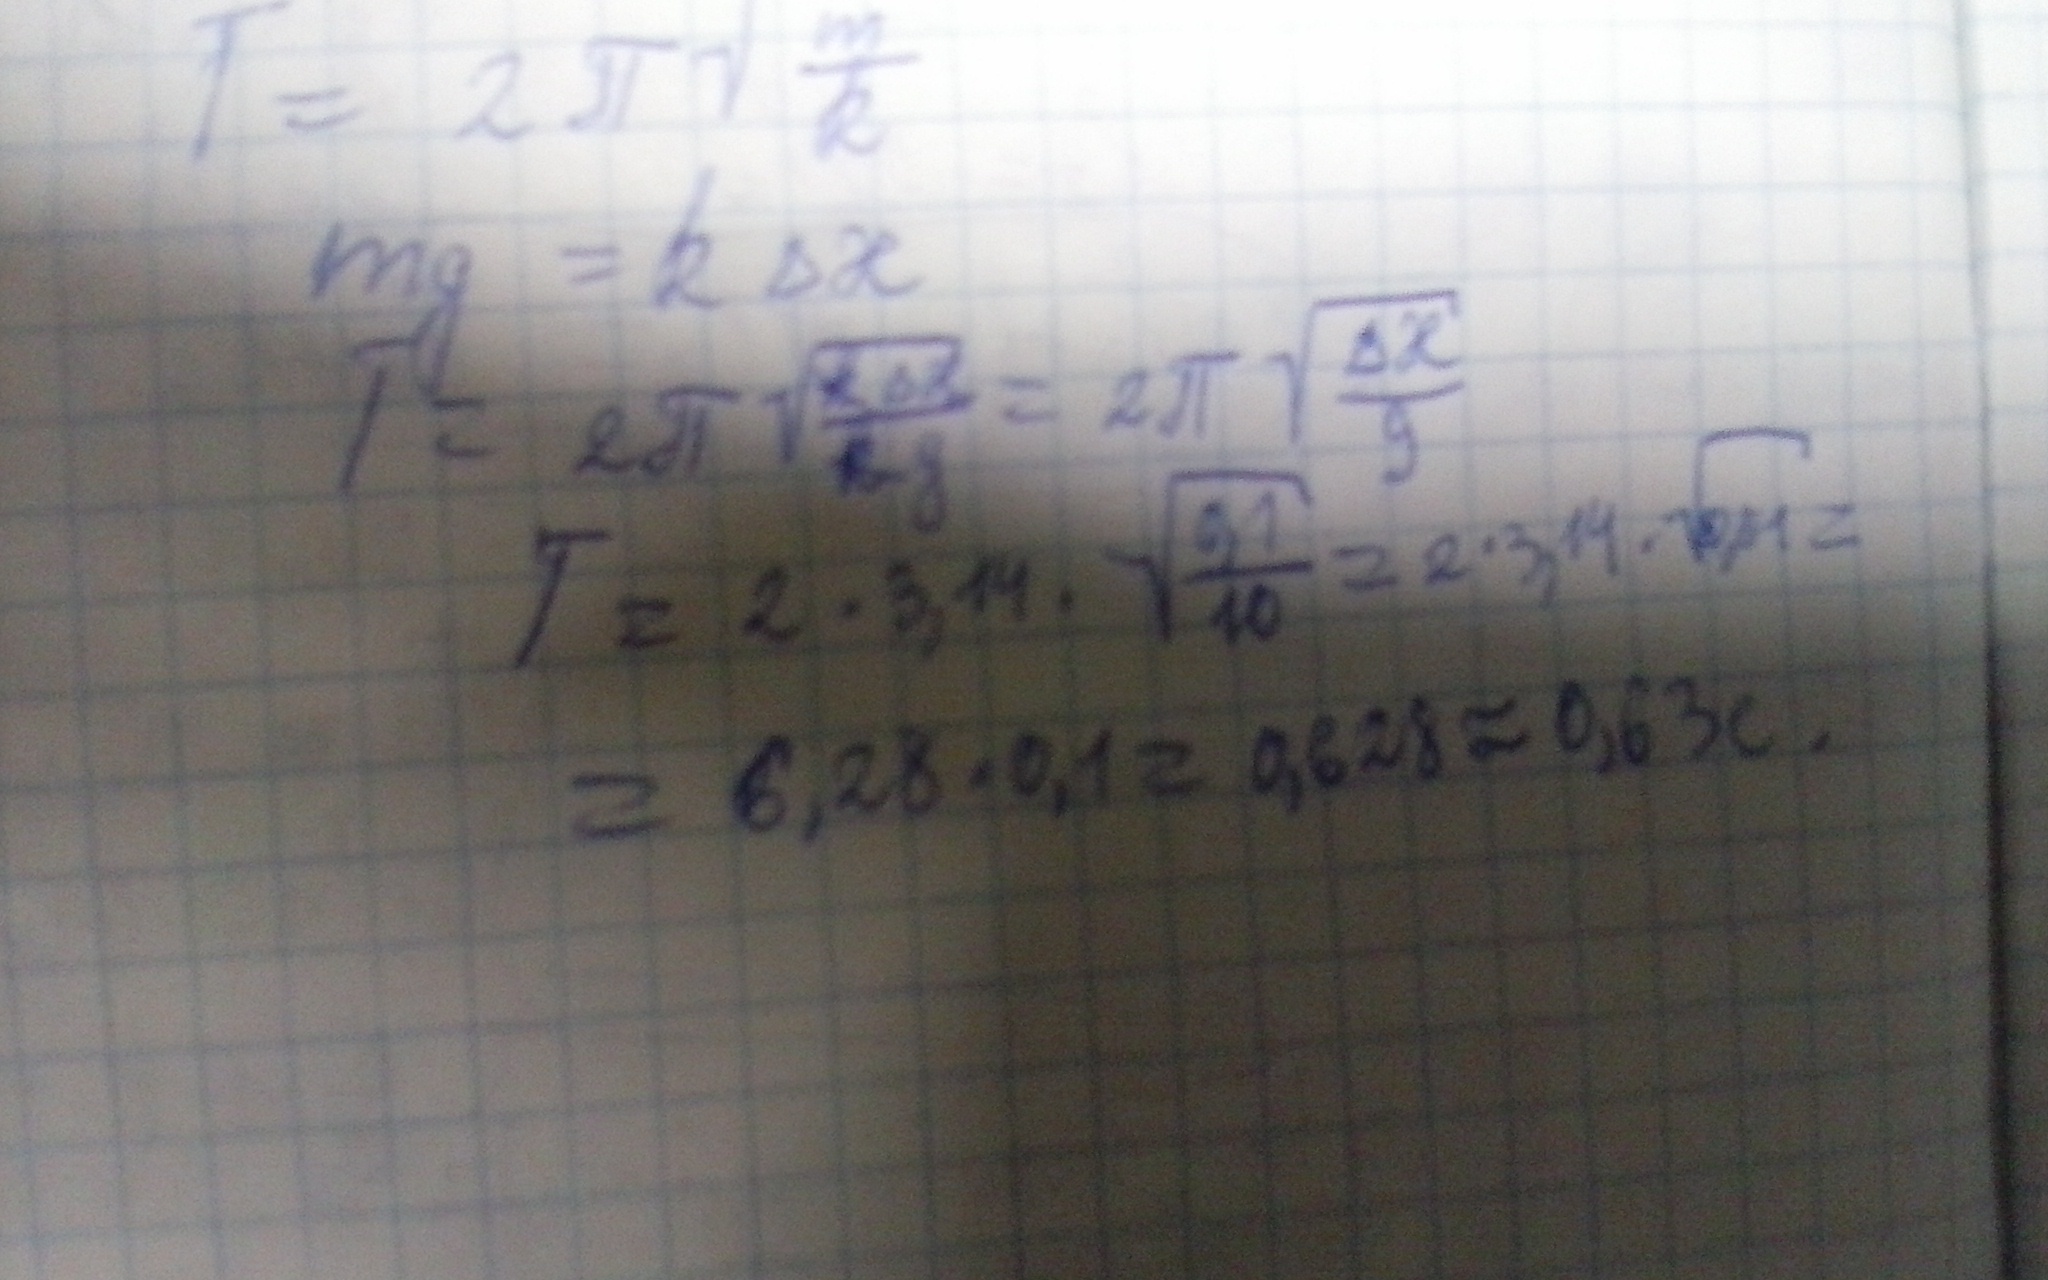 T = 2π√m/k
mg = kΔx
T = 2π√kΔx/kg = 2π√Δx/g
T = 2·3,14·√0,1/10 = 2·3,14·√0,01 =
= 6,28·0,1 = 0,628 ≈ 0,63с.